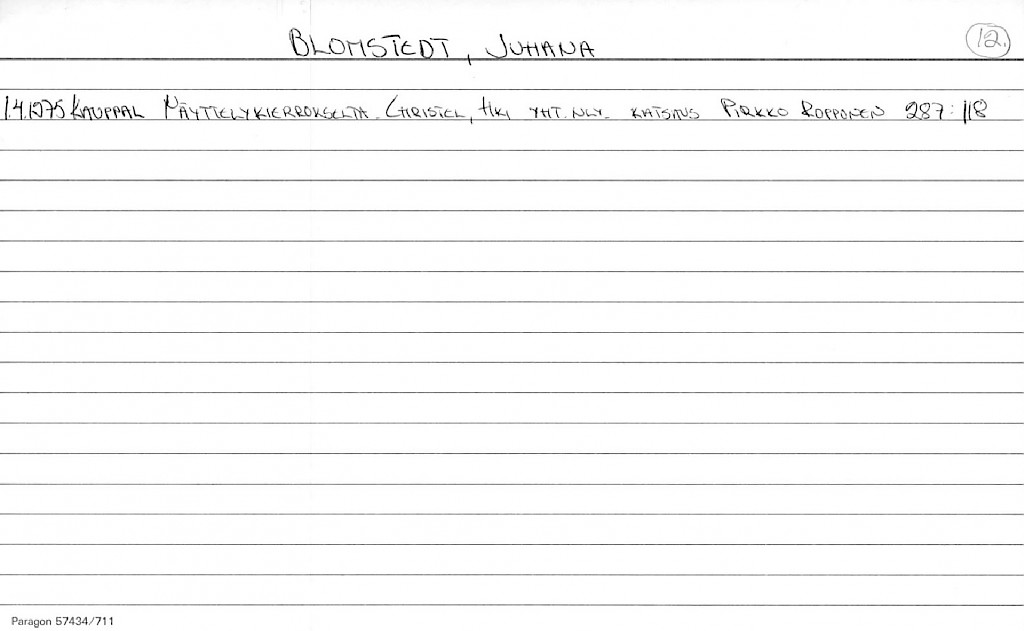 BLOMSTEDT, JUHANA 12.
1.4.1975 KAUPPAL NÄYTTELYKIERROKSELTA. CHRISTEL, HKI YHT. NLY. KATSAUS PIRKKO ROPPONEN 287:118
Paragon 57434/711